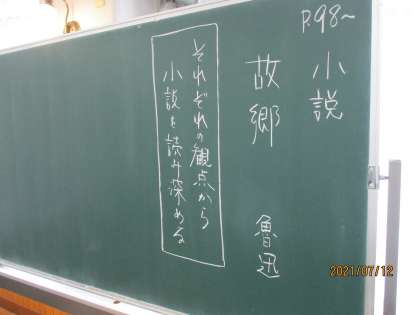 P.98~
小説
故郷 魯迅
それぞれの観点から
小説を読み深める
2021/07/12